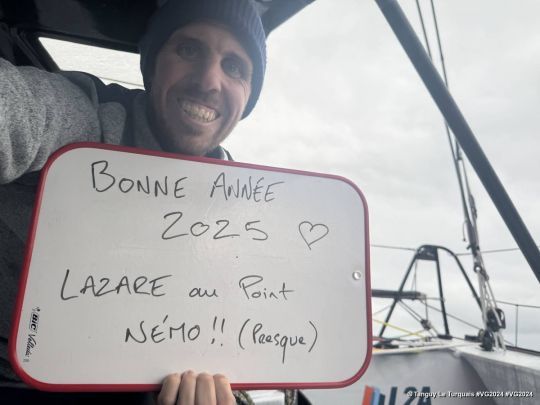 BONNE ANNÉE
2025 ♡
LAZARE au Point
NÉMO!! (Presque)
BIC Velleda
L2A
© Tanguy Le Turquais #VG2024 #VG2024